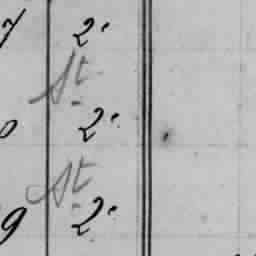 7 2.
St.
0 2.
St.
9 2.